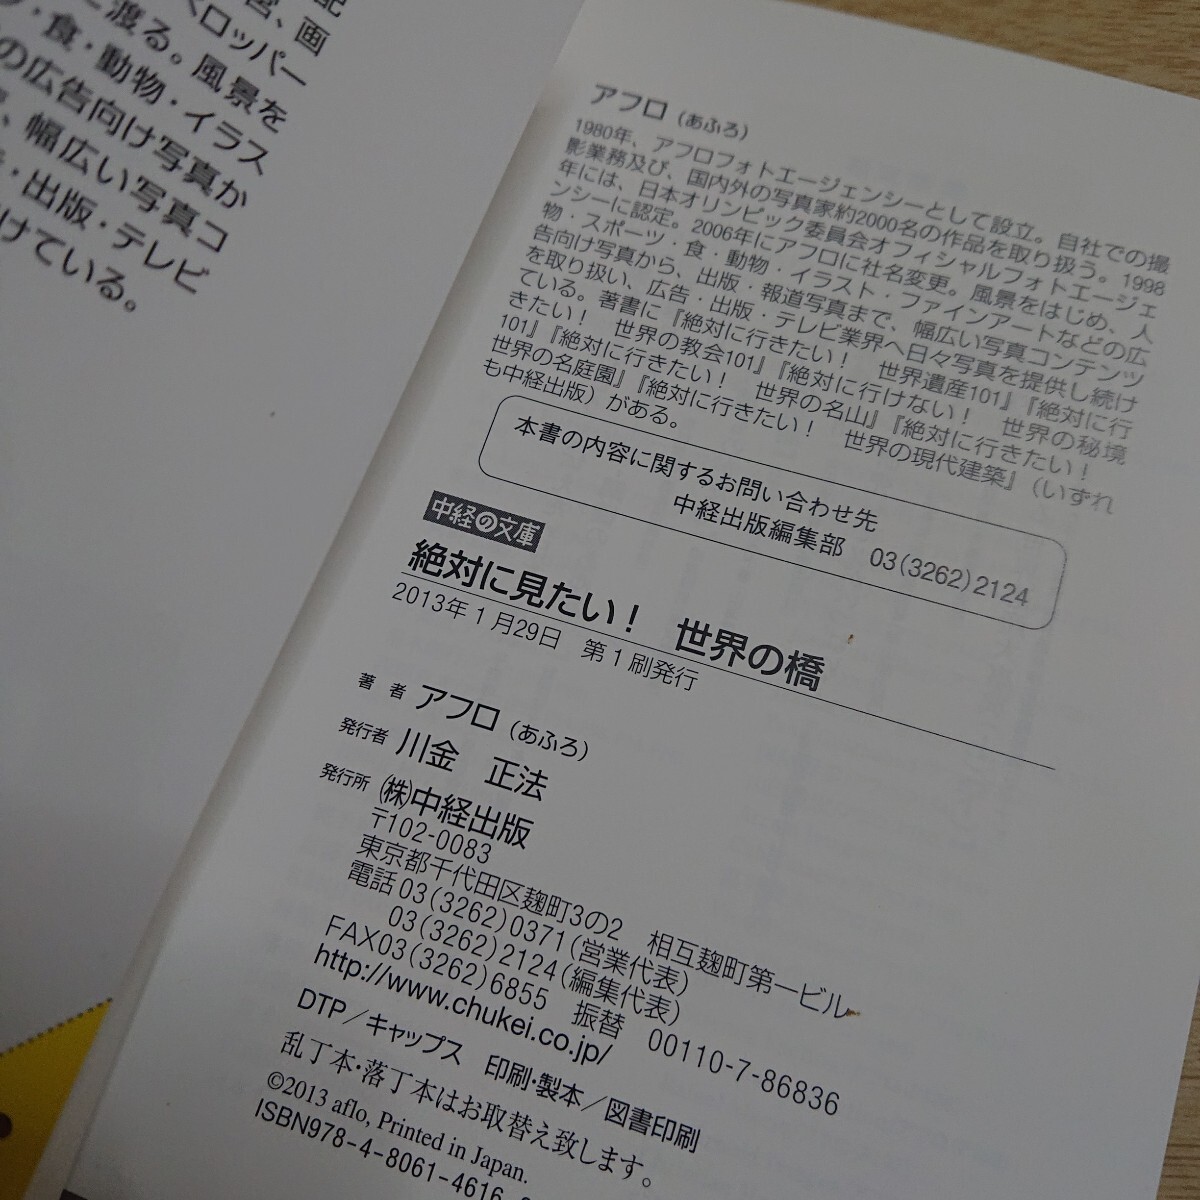 配
営、画
ベロッパー
に渡る。風景を
ツ・食・動物・イラス
の広告向け写真か
、幅広い写真コ
告・出版・テレビ
けている。
アフロ（あふろ）
1980年、アフロフォトエージェンシーとして設立。自社での撮
影業務及び、国内外の写真家約2000名の作品を取り扱う。1998
年には、日本オリンピック委員会オフィシャルフォトエージェ
ンシーに認定。2006年にアフロに社名変更。風景をはじめ、人
物・スポーツ・食・動物・イラスト・ファインアートなどの広
告向け写真から、出版・報道写真まで、幅広い写真コンテンツ
を取り扱い、広告・出版・テレビ業界へ日々写真を提供し続け
ている。著書に『絶対に行きたい！　世界遺産101』『絶対に行
きたい！　世界の教会101』『絶対に行けない！　世界の秘境
101』『絶対に行きたい！　世界の名山』『絶対に行きたい！
世界の名庭園』『絶対に行きたい！　世界の現代建築』（いずれ
も中経出版）がある。
本書の内容に関するお問い合わせ先
中経出版編集部　03(3262)2124
中経の文庫
絶対に見たい！　世界の橋
2013年1月29日　第1刷発行
著　者　アフロ（あふろ）
発行者　川金　正法
発行所　㈱中経出版
〒102-0083
東京都千代田区麹町3の2　相互麹町第一ビル
電話03(3262)0371(営業代表)
03(3262)2124(編集代表)
FAX03(3262)6855　振替　00110-7-86836
http://www.chukei.co.jp/
DTP／キャップス　印刷・製本／図書印刷
乱丁本・落丁本はお取替え致します。
©2013 aflo, Printed in Japan.
ISBN978-4-8061-4616